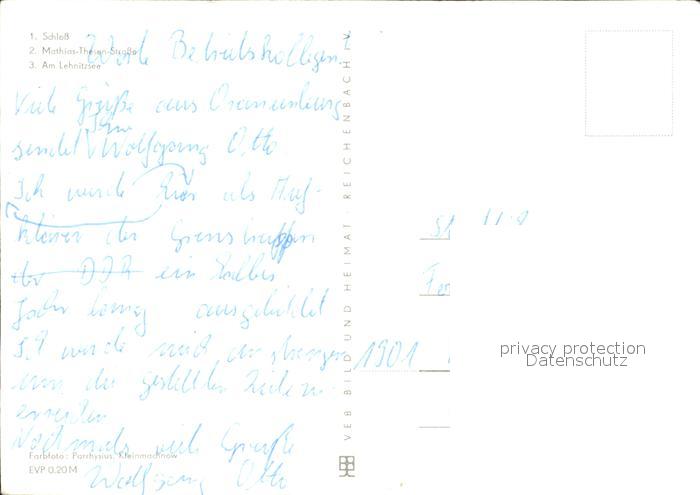 1. Schloß
2. Mathias-Thesen-Straße
3. Am Lehnitzsee
Werte Betriebskollegen!
Viele Grüße aus Oranienburg
sendet Ihnen Wolfgang Otto
Ich werde hier als Auf-
klärer der Grenztruppen
der DDR ein halbes
Jahr lang ausgebildet
Ich werde mich anstrengen
um die gestellten Ziele zu
erreichen
Nochmals viele Grüße
Wolfgang Otto
Farbfoto: Parrhysius, Kleinmachnow
EVP 0.20 M
VEB BILD UND HEIMAT · REICHENBACH i. V.
1901
privacy protection
Datenschutz